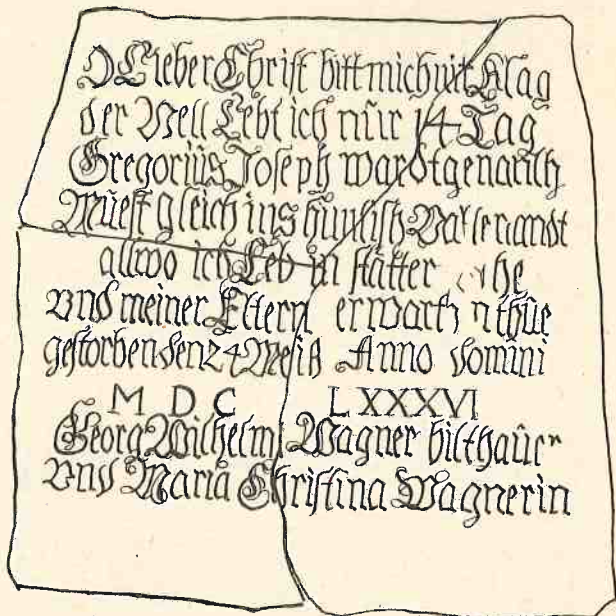 O Lieber Christ bitt mich nit Klag
der Vell Lebt ich nur 14 Tag
Gregorius Joseph wardt genanth
Müest gleich ins himlish Vatterlandt
allwo ich Leb in stätter
vnd meiner Eltern thue
gestorben den 24 Anno domini
M D C L XXXVI
Georg Wilhelm Wagner bilthauer
vnd Maria Christina Wagnerin